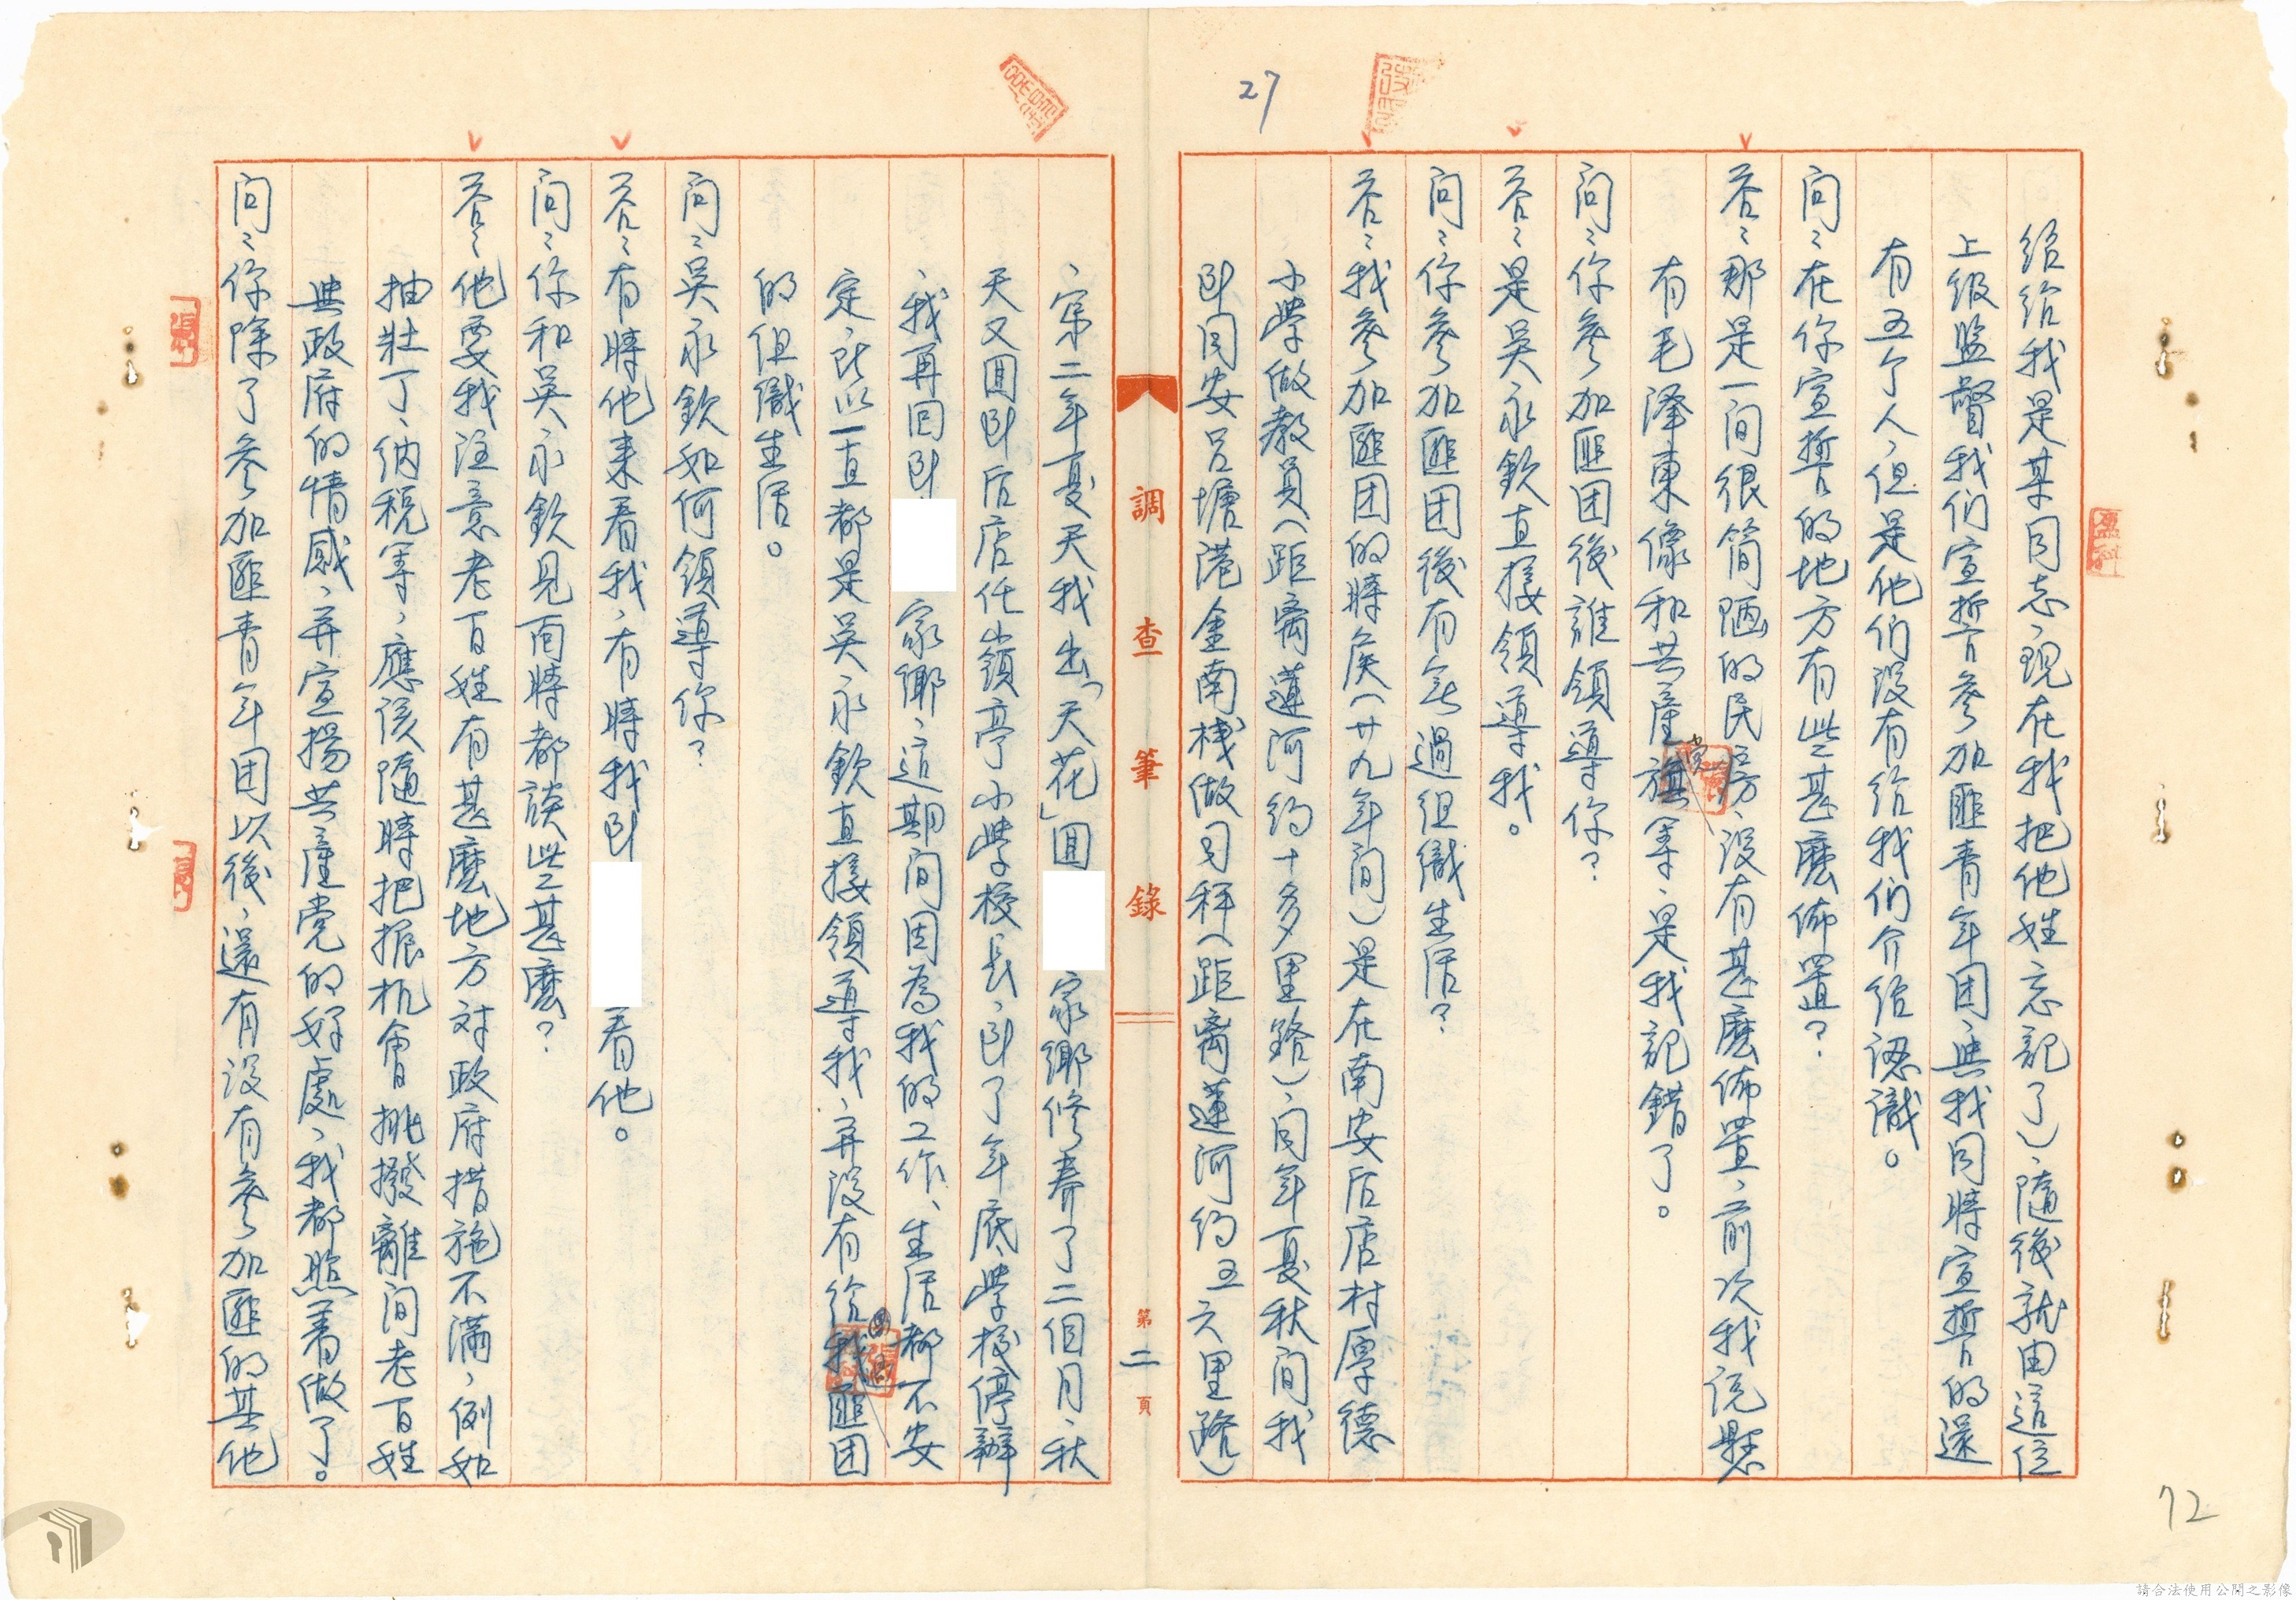 27
給給我是某同志，現在我把他姓忘記了），隨後就由這位
上級監督我们宣誓参加匪青年团，與我同時宣誓的還
有五个人，但是他们没有给我们介绍認識。
问：在你宣誓的地方有些甚麼佈置？
答：那是一间很简陋的民房，没有甚麼佈置，前次我説懸
有毛澤東像和共産党旗等，是我記錯了。
问：你參加匪团後誰領導你？
答：是吴永欽直接領導我。
问：你參加匪团後有無過组織生活？
答：我參加匪团的時候（廿九年间）是在南安后店村厚德
小學做教員（距离蓮河约十多里路），同年夏秋间我
到同安吕塘港金南棧做司秤（距离蓮河约五六里路）
調查筆錄
第二頁
，第二年夏天我出「天花」囬
家鄉修养了二個月，秋
天又囬到后店任崙頭亭小學校長，到了年底，學校停辦
，我再回到
家鄉，這期间因為我的工作、生活都不安
定，所以一直都是吴永欽直接領導我，并没有给我匪团
的组織生活。
问：吴永欽如何領導你？
答：有時他来看我，有時我到
看他。
问：你和吴永欽見面時都談些甚麼？
答：他要我注意老百姓有甚麼地方对政府措施不滿，例如
抽壮丁、纳税等，應该隨時把握机會挑撥離间老百姓
與政府的情感，并宣揚共產党的好處，我都照着做了。
问：你除了參加匪青年团以後，還有没有參加匪的其他
72
請合法使用公開之影像